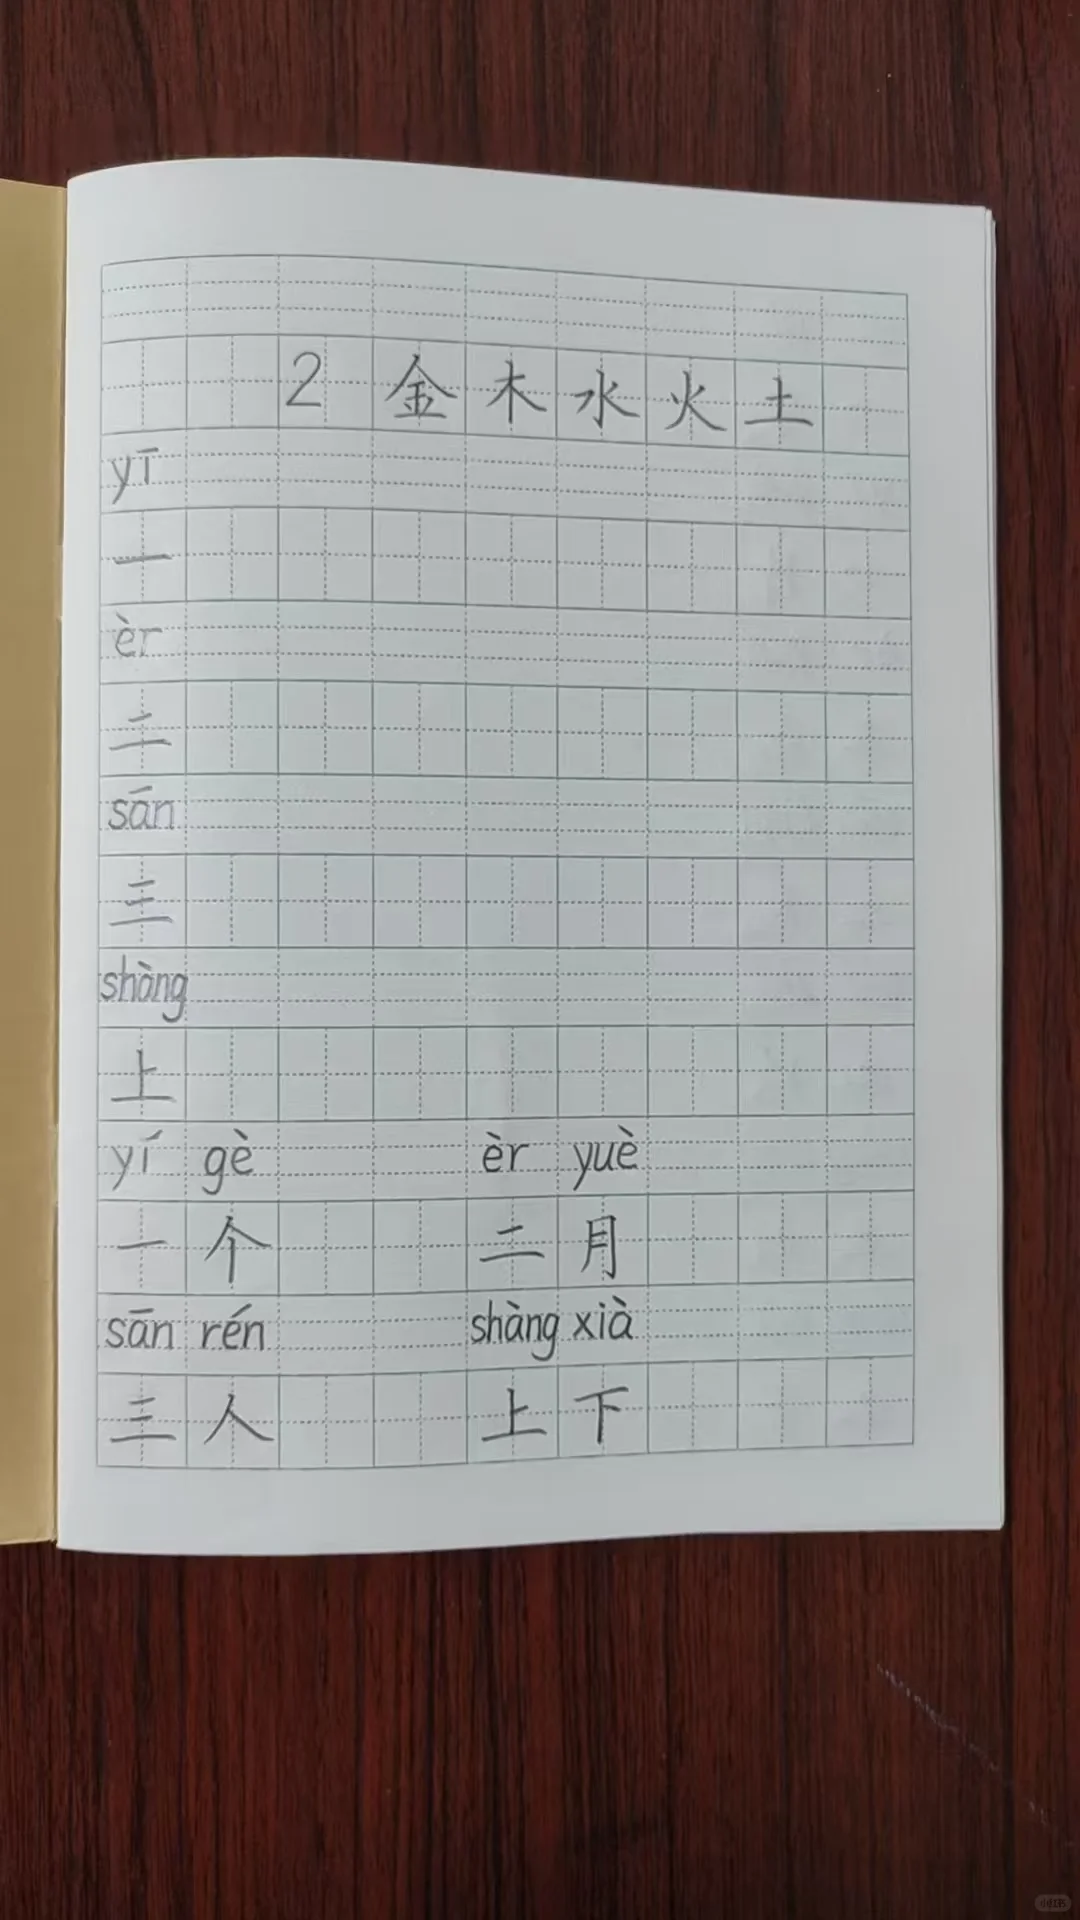 2 金木水火土
yī
一
èr
二
sān
三
shàng
上
yí gè èr yuè
一个 二月
sān rén shàng xià
三人 上下